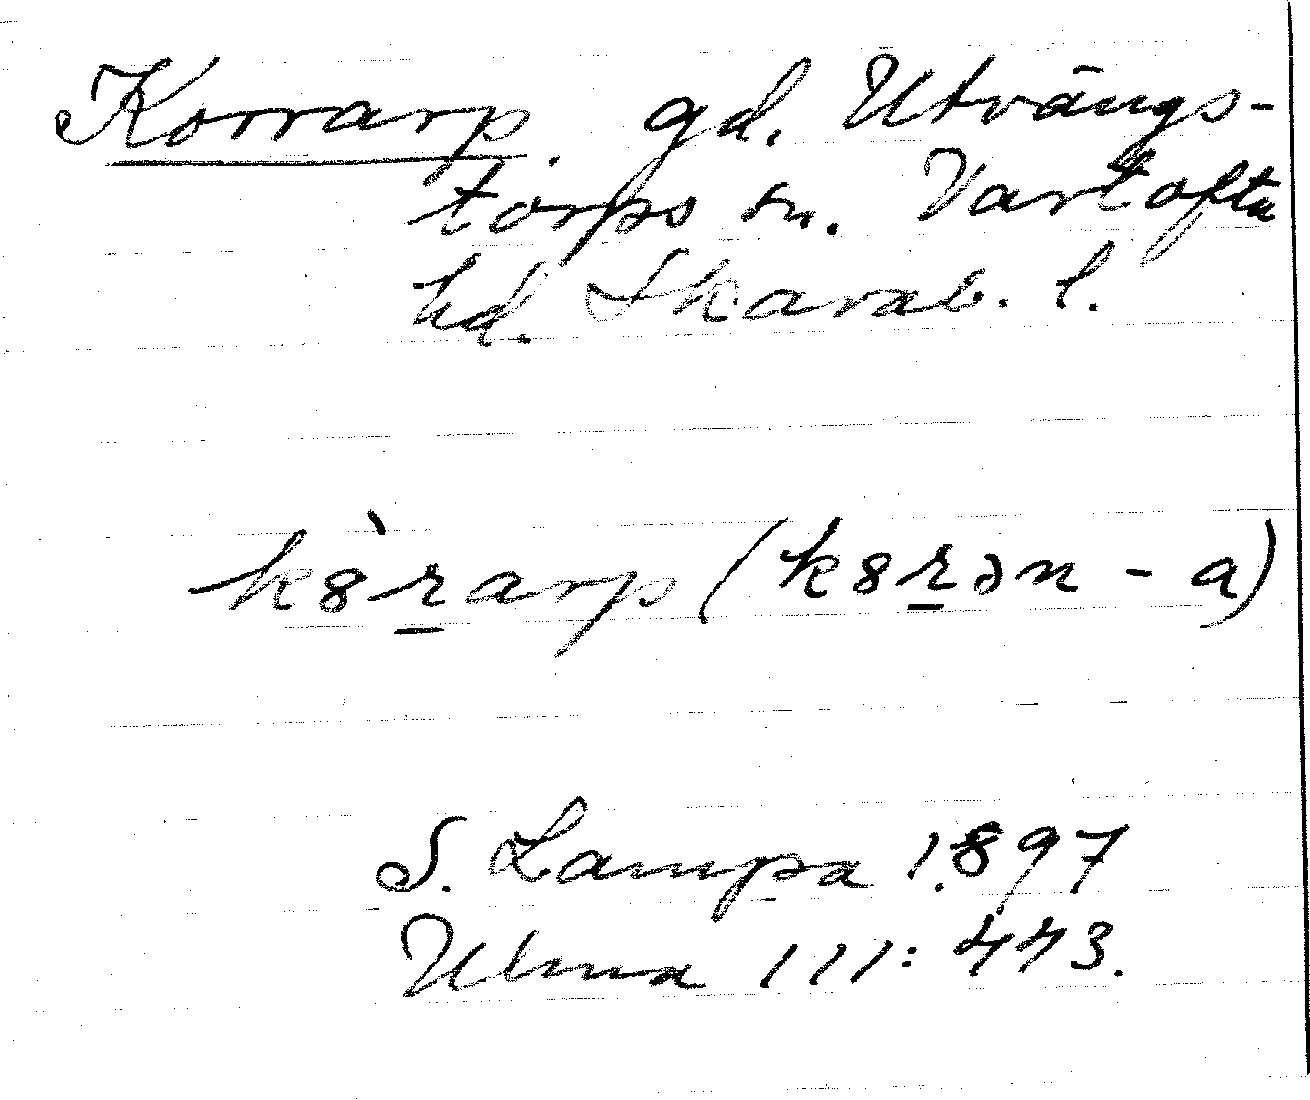 Korrarp. gd. Utvängs-
torps sn. Vartofta
hd. Skarab. l.
k8̀r̠arp (k8r̠ən - a)
S. Lampa 1897
Ulma 111: 443.